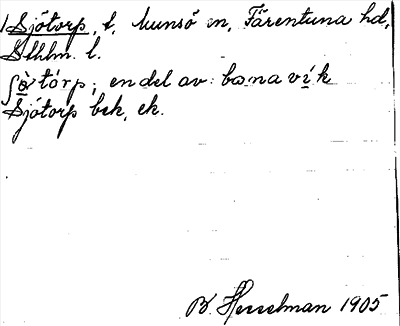 1 Sjötorp, t, Munsö sn, Färentuna hd,
Sthlm. l.
ʃø̀tórp; en del av: bonavík
Sjötorp bek, ek.
B Hesselman 1905